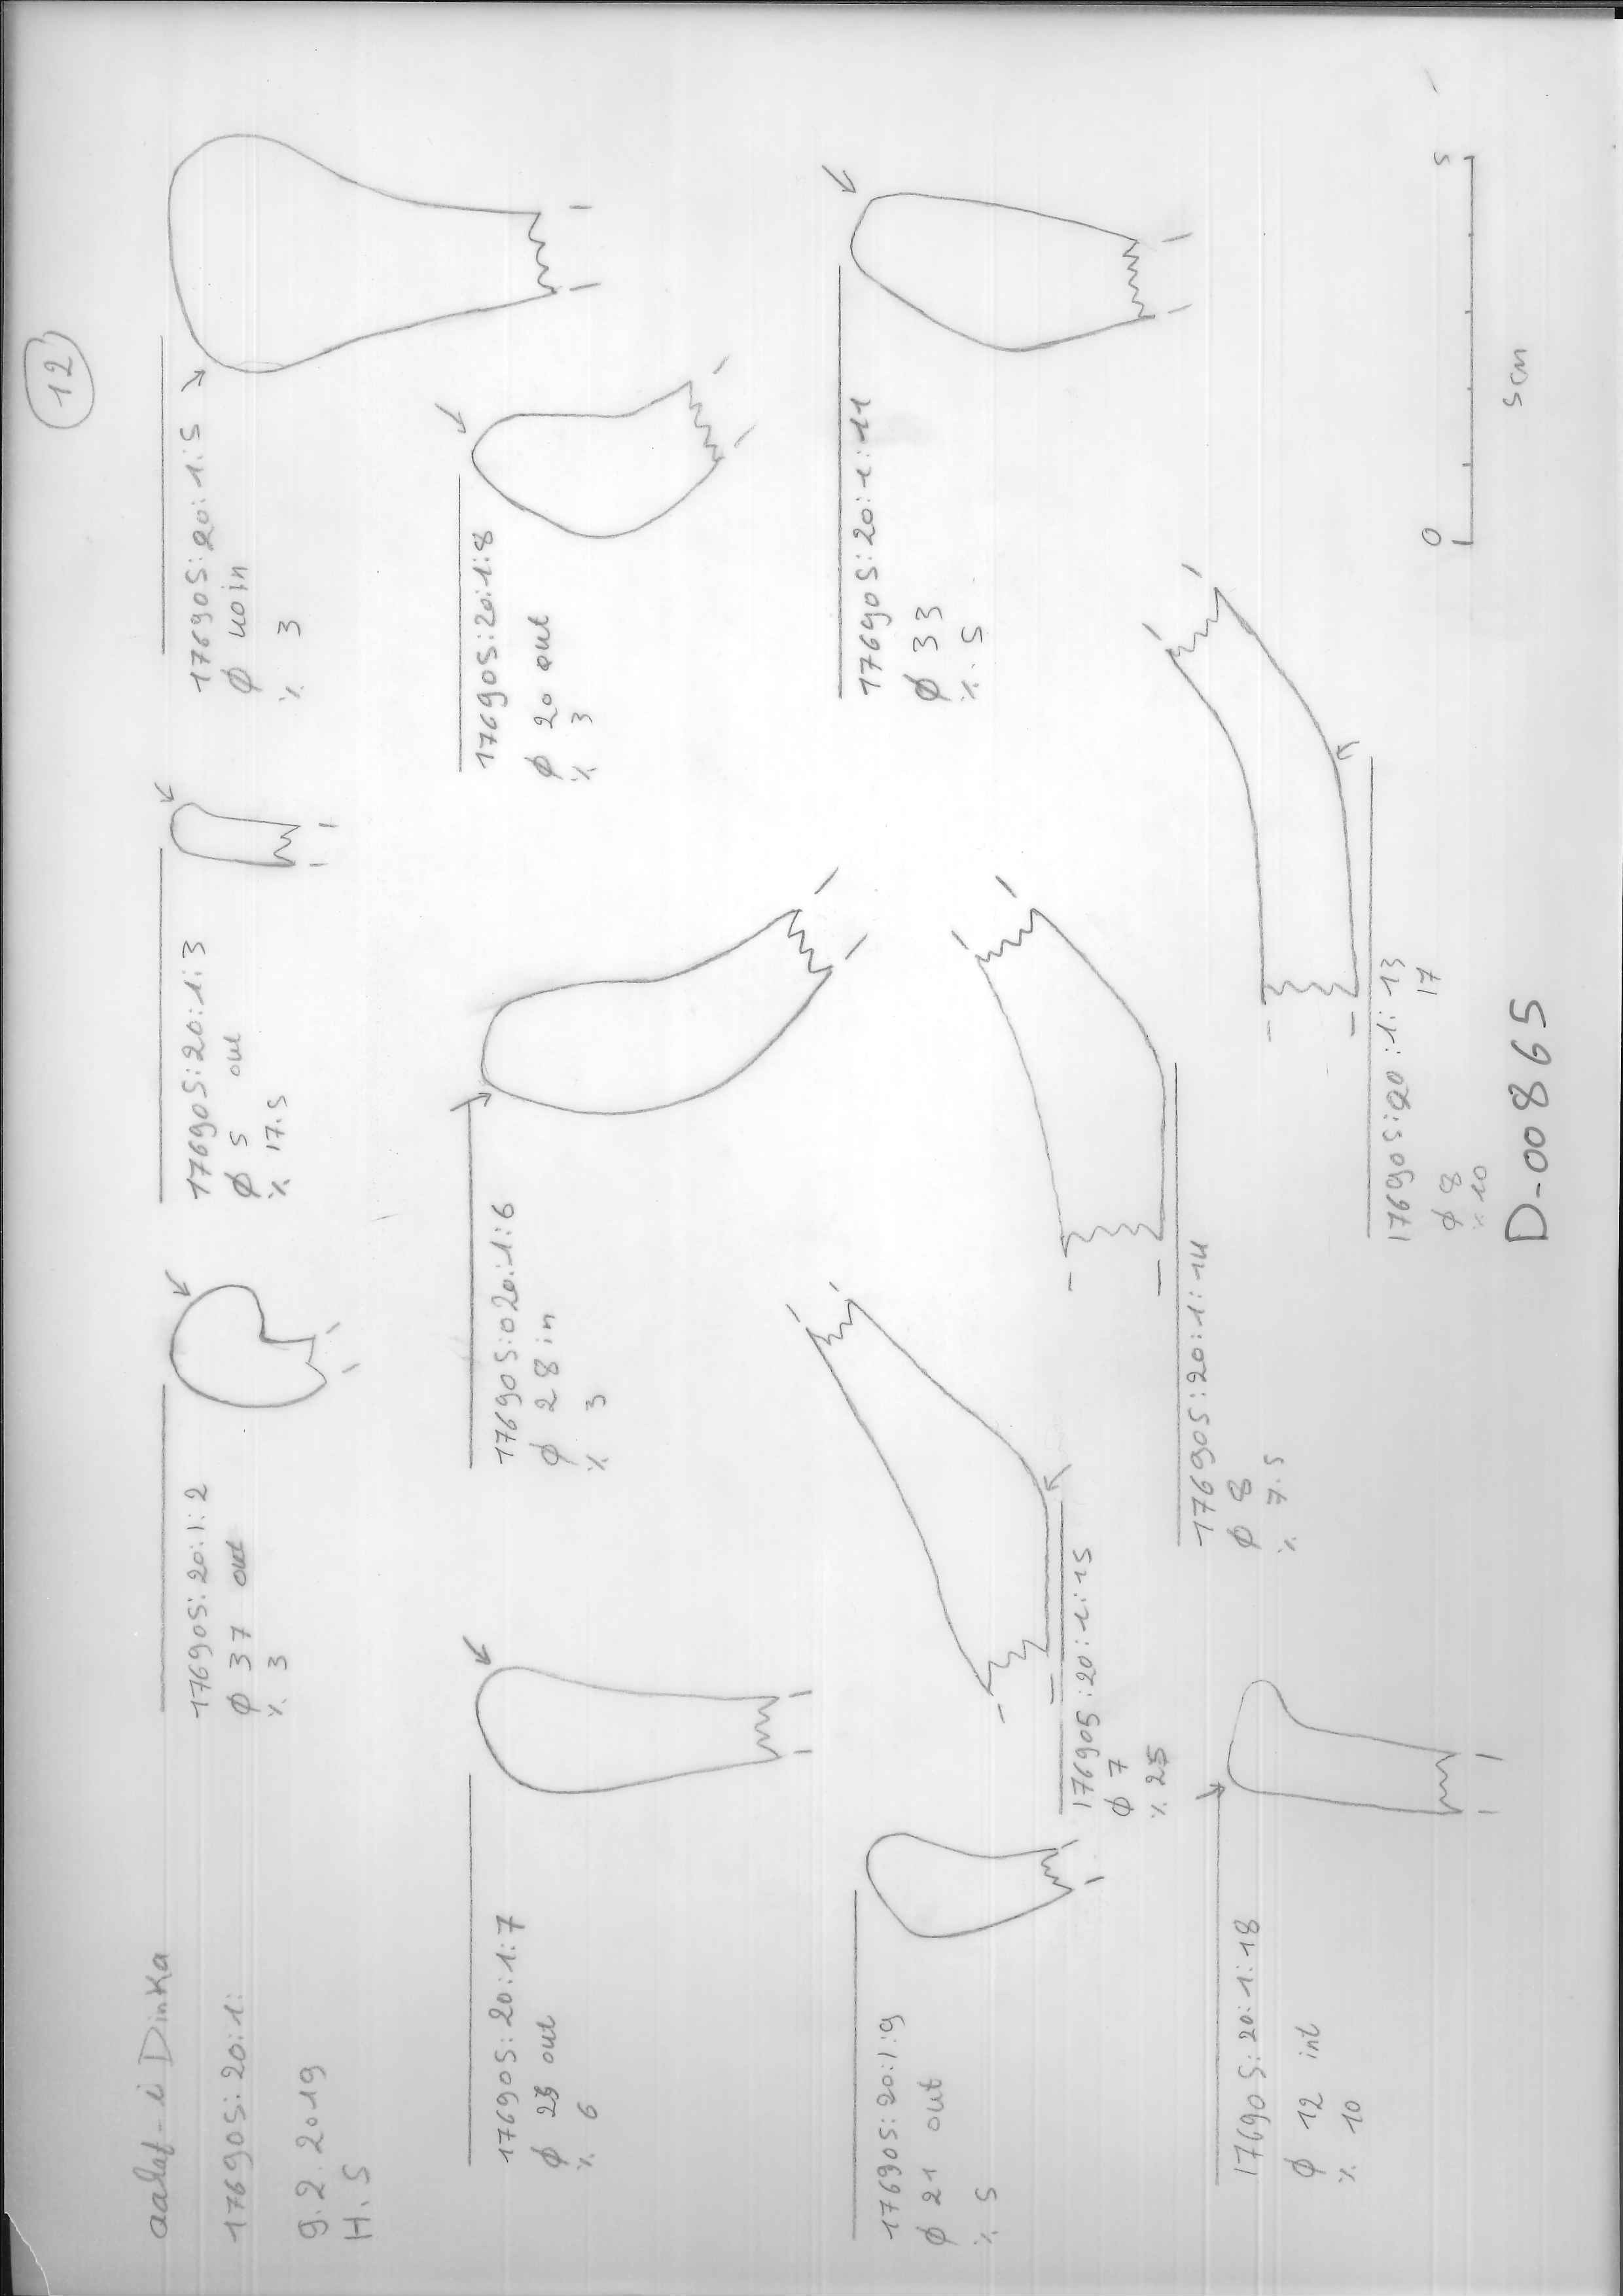 12
Qalat-i Dinka
176905:20:1:
9.2.2019
H.S
176905:20:1:2
Ø 37 out
% 3
176905:20:1:3
Ø 5 out
% 17.5
176905:20:1:5
Ø 40 in
% 3
176905:20:1:7
Ø out
% 6
176905:020:1:6
Ø 28 in
% 3
176905:20:1:8
Ø 20 out
% 3
176905:20:1:9
Ø 21 out
% 5
176905:20:1:15
Ø 7
% 25
176905:20:1:14
Ø 8
% 7.5
176905:20:1:11
Ø 33
% 5
176905:20:1:18
Ø 12 int
% 10
176905:20:1:13
17
Ø 8
% 10
0 5
5cm
D-00865